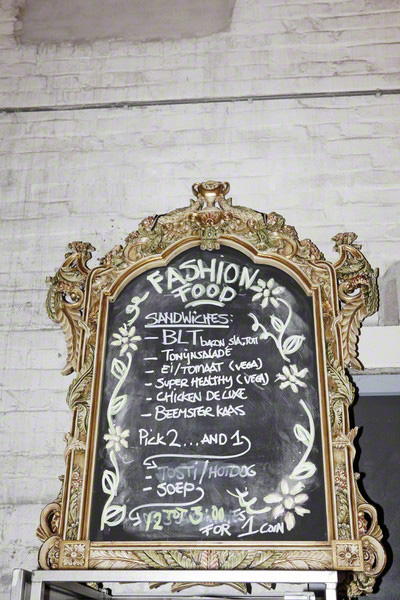 FASHION
FOOD
SANDWICHES:
- BLT BACON SLA, TOM
- TONIJNSALADE
- EI/TOMAAT (VEGA)
- SUPER HEALTHY (VEGA)
- CHICKEN DE LUXE
- BEEMSTER KAAS
PICK 2 ... AND 1
- TOSTI/HOTDOG
- SOEP
1/2 TOT 3:00
FOR 1 COIN